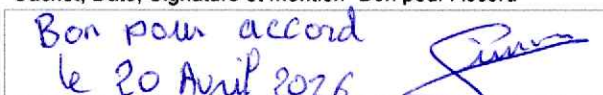 Cachet, Date, Signature et mention "Bon pour Accord"
Bon pour accord
le 20 Avril 2026